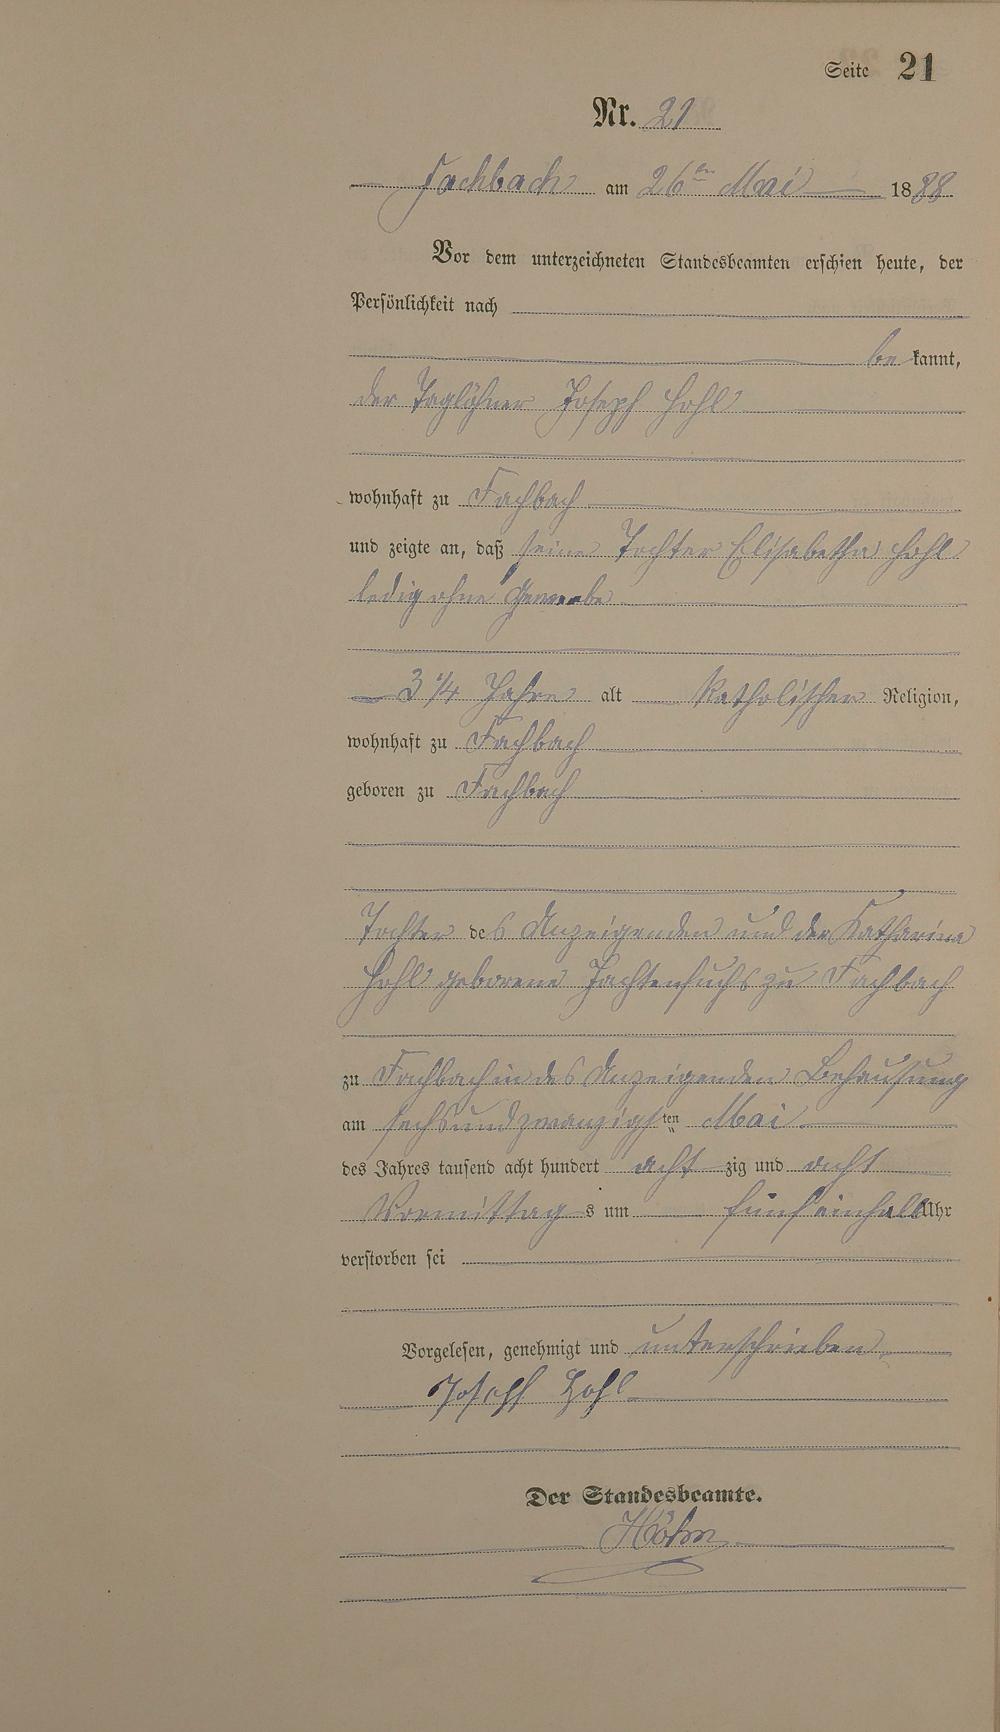 Seite 21
Nr. 21
Fachbach am 26ten Mai 1888
Vor dem unterzeichneten Standesbeamten erschien heute, der
Persönlichkeit nach
bekannt,
der Taglöhner Joseph Hohl
wohnhaft zu Fachbach
und zeigte an, daß seine Tochter Elisabetha Hohl
ledig ohne Gewerbe
3 1/4 Jahre alt katholischer Religion,
wohnhaft zu Fachbach
geboren zu Fachbach
Tochter des Anzeigenden und der Katharina
Hohl geborene Jachtenfuchs zu Fachbach
zu Fachbach in des Anzeigenden Behausung
am sechsundzwanzigsten Mai
des Jahres tausend acht hundert achtzig und acht
Vormittags um fünf einhalb Uhr
verstorben sei
Vorgelesen, genehmigt und unterschrieben
Joseph Hohl
Der Standesbeamte.
Höhn